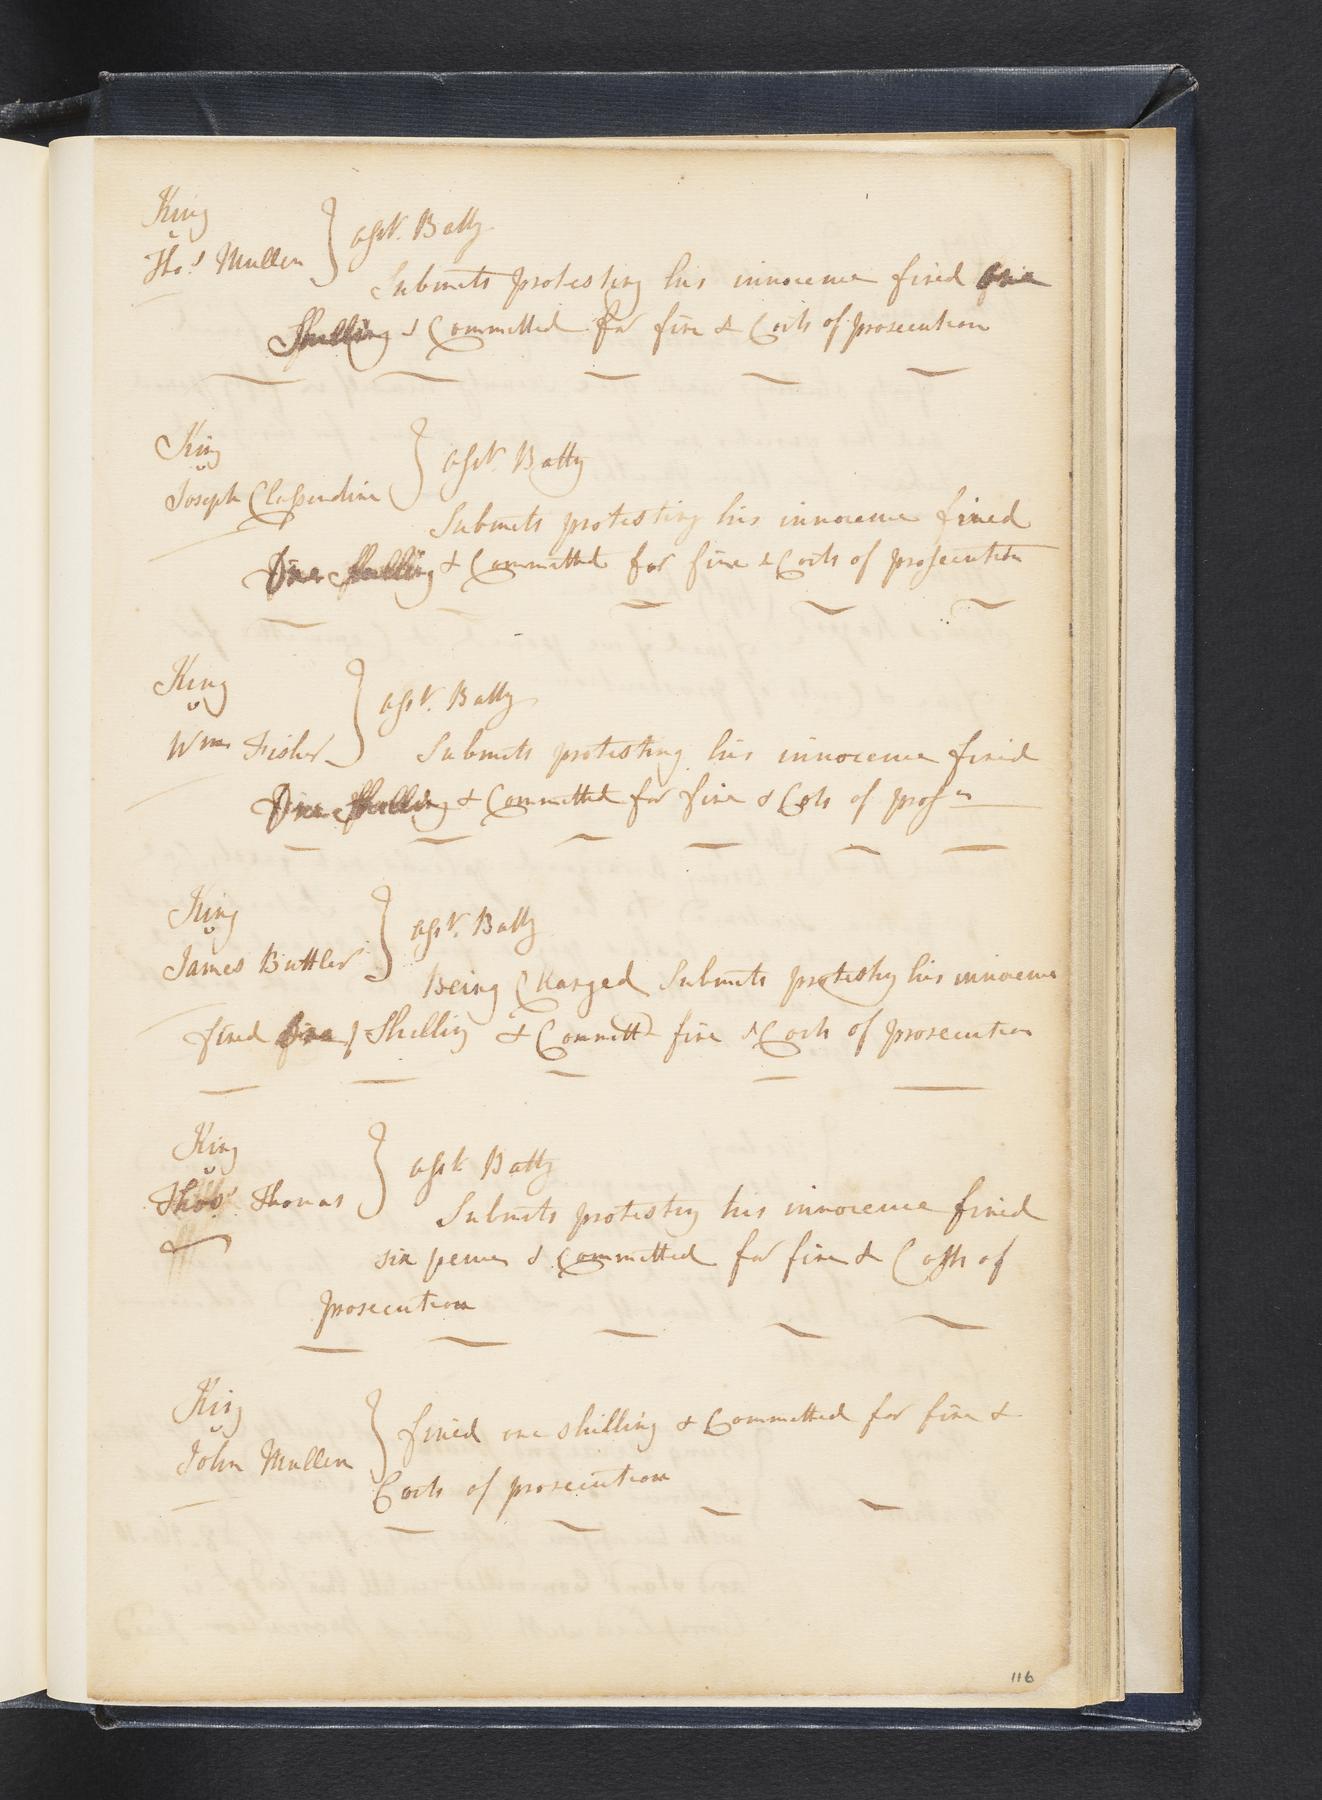 King
v
Thos. Mullen } asst. Batty
Submits protesting his innocence fined one
Shilling & Committed for fine & Costs of prosecution
King
v
Joseph Clessendine } asst. Batty
Submits protesting his innocence fined
One Shilling & Committed for fine & Costs of prosecution
King
v
Wm Fisher } asst. Batty
Submits protesting his innocence fined
One Shilling & Committed for fine & Costs of prosn
King
v
James Buttler } asst. Batty
Being Charged Submits protestg his innocence
fined One / Shilling & Committd fine & Costs of prosecution
King
v
Thos. Thomas } asst. Batty
Submits protestg his innocence fined
six pence & Committed for fine & Costs of
prosecution
King
v
John Mullen } fined one shilling & Committed for fine &
Costs of prosecution
116